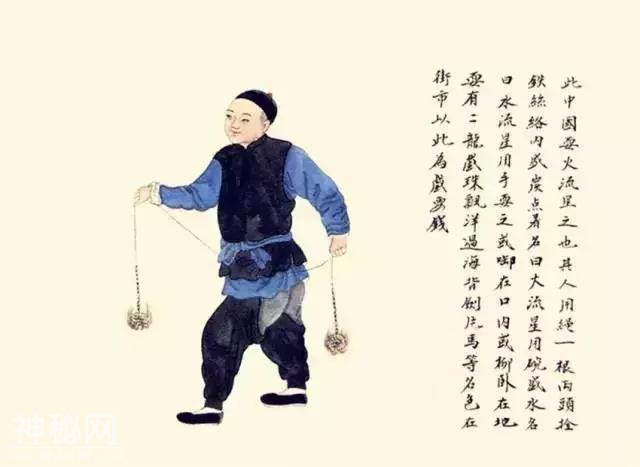 此中國耍火流星之圖也其人用繩一根兩頭拴
鉄絲絡內或炭点着名曰火流星用碗盛水名
曰水流星用手耍之或啣在口內或柳卧在地
耍有二龍戲珠觀洋過海背劍跑馬等名色在
街市以此為戲要錢
神秘网